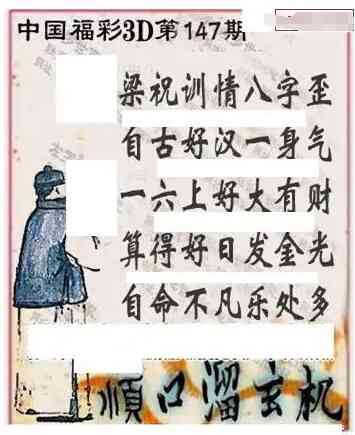 中国福彩3D第147期
梁祝训情八字歪
自古好汉一身气
一六上好大有财
算得好日发金光
自命不凡乐处多
顺口溜玄机